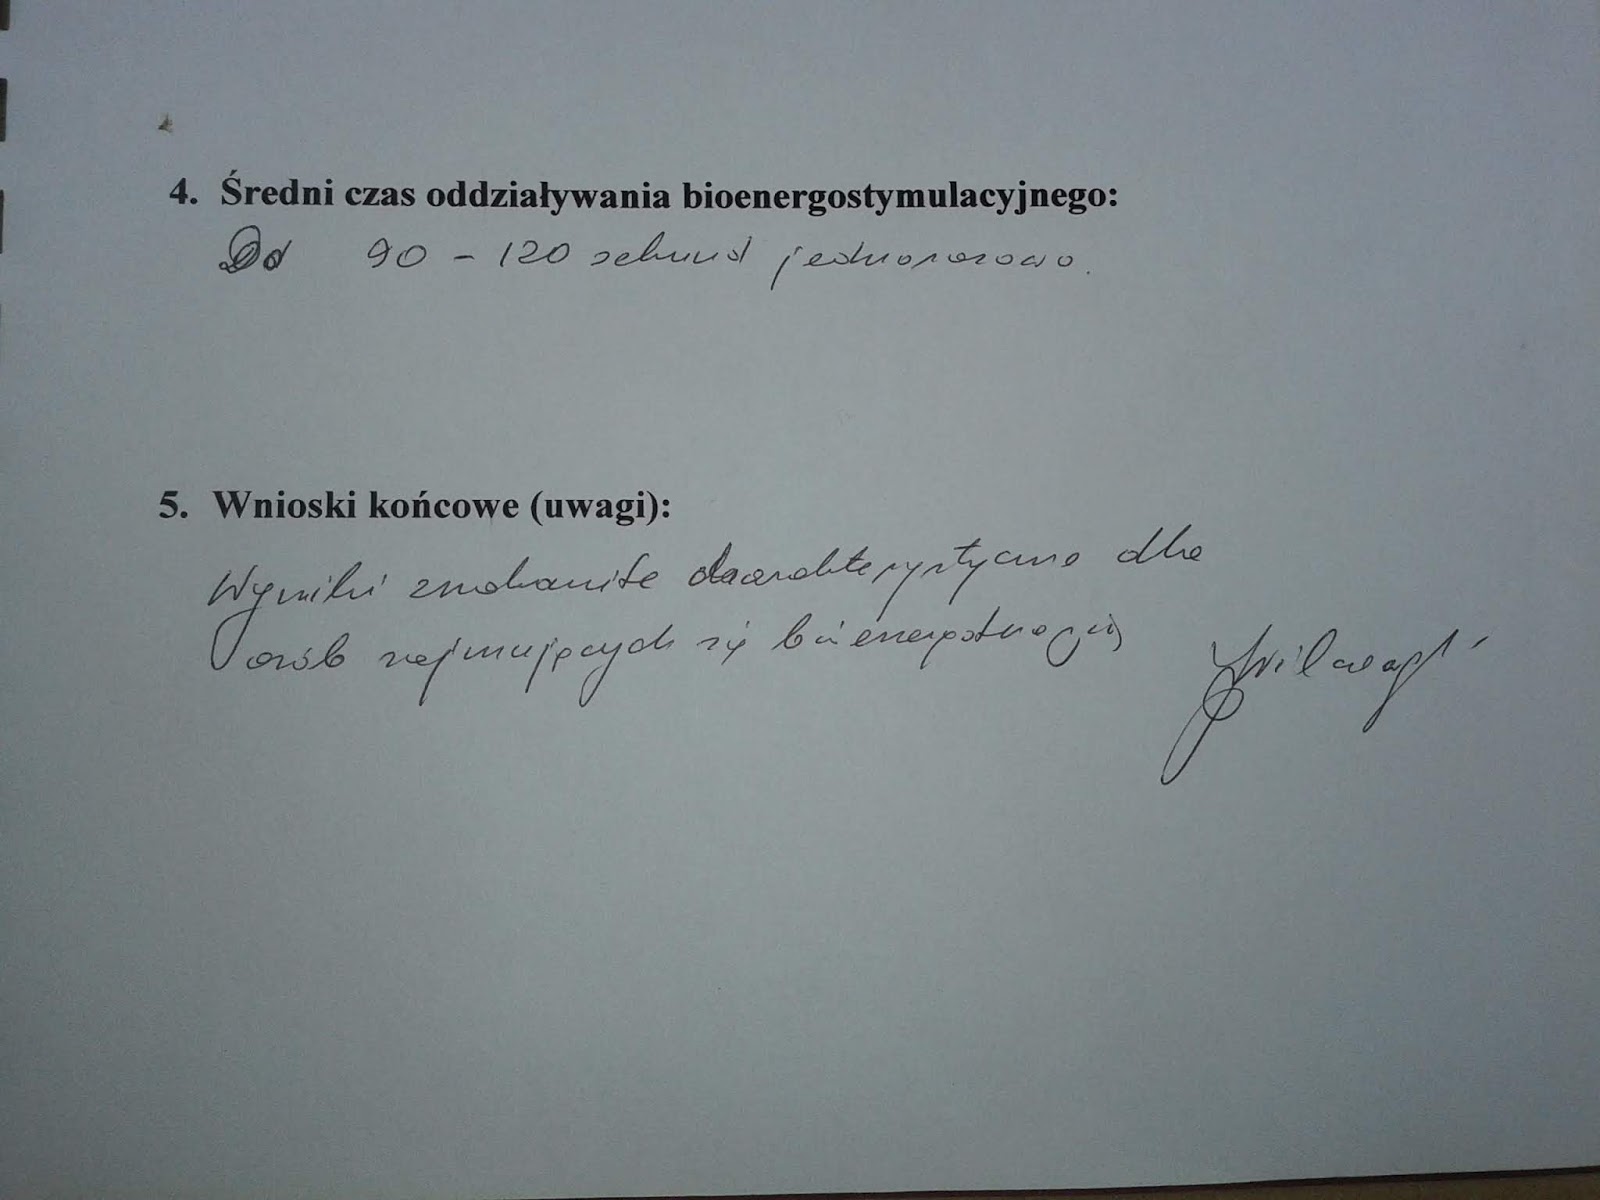 4. Średni czas oddziaływania bioenergostymulacyjnego:
Od 90 - 120 sekund jednorazowo.
5. Wnioski końcowe (uwagi):
Wyniki znakomite charakterystyczne dla
osób zajmujących się bioenergoterapią